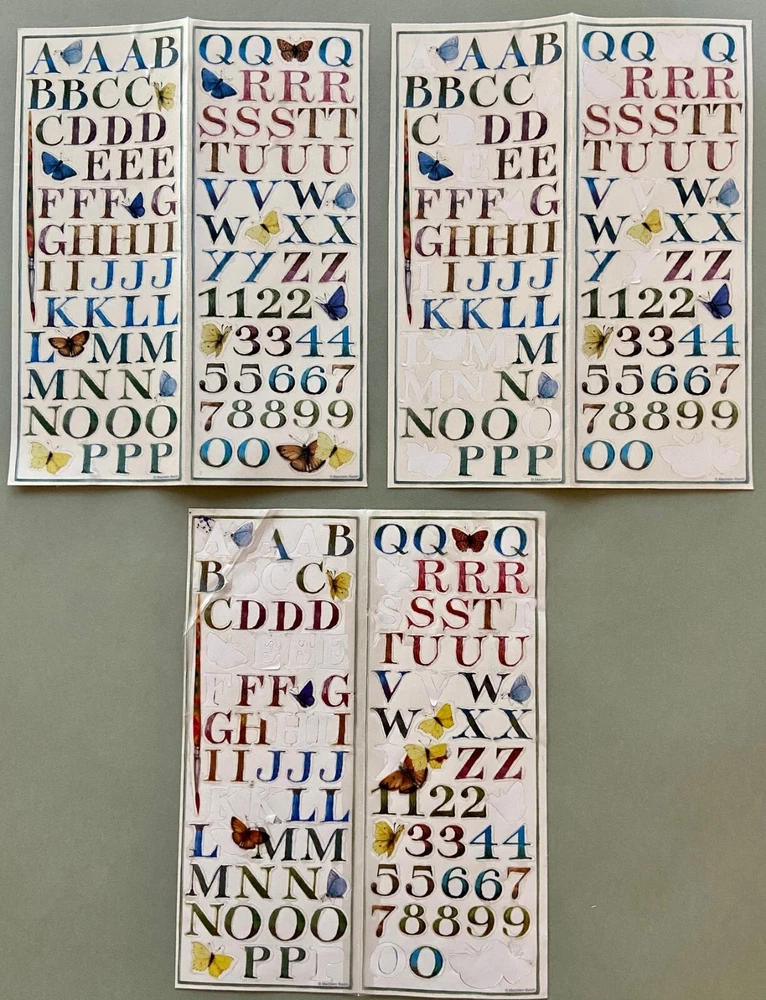 A AAB
BBCC
CDDD
EEE
FFF G
GHHII
IIJJJ
KKLL
L MM
MNN
NOOO
PPP
QQ Q
RRR
SSSTT
TUUU
VVW
W XX
YYZZ
1122
3344
55667
78899
00
AAB
BBCC
C DD
EE
FFF G
GHHII
I JJJ
KKLL
M
N
NOO
PPP
QQ Q
RRR
SSSTT
TUUU
V W
W XX
Y ZZ
1122
3344
55667
78899
00
A B
B C
CDDD
FF G
GH I
IIJJJ
LL
L MM
MNN
NOOO
PP
QQ Q
RRR
SST
TUUU
V W
W XX
ZZ
1122
3344
55667
78899
0